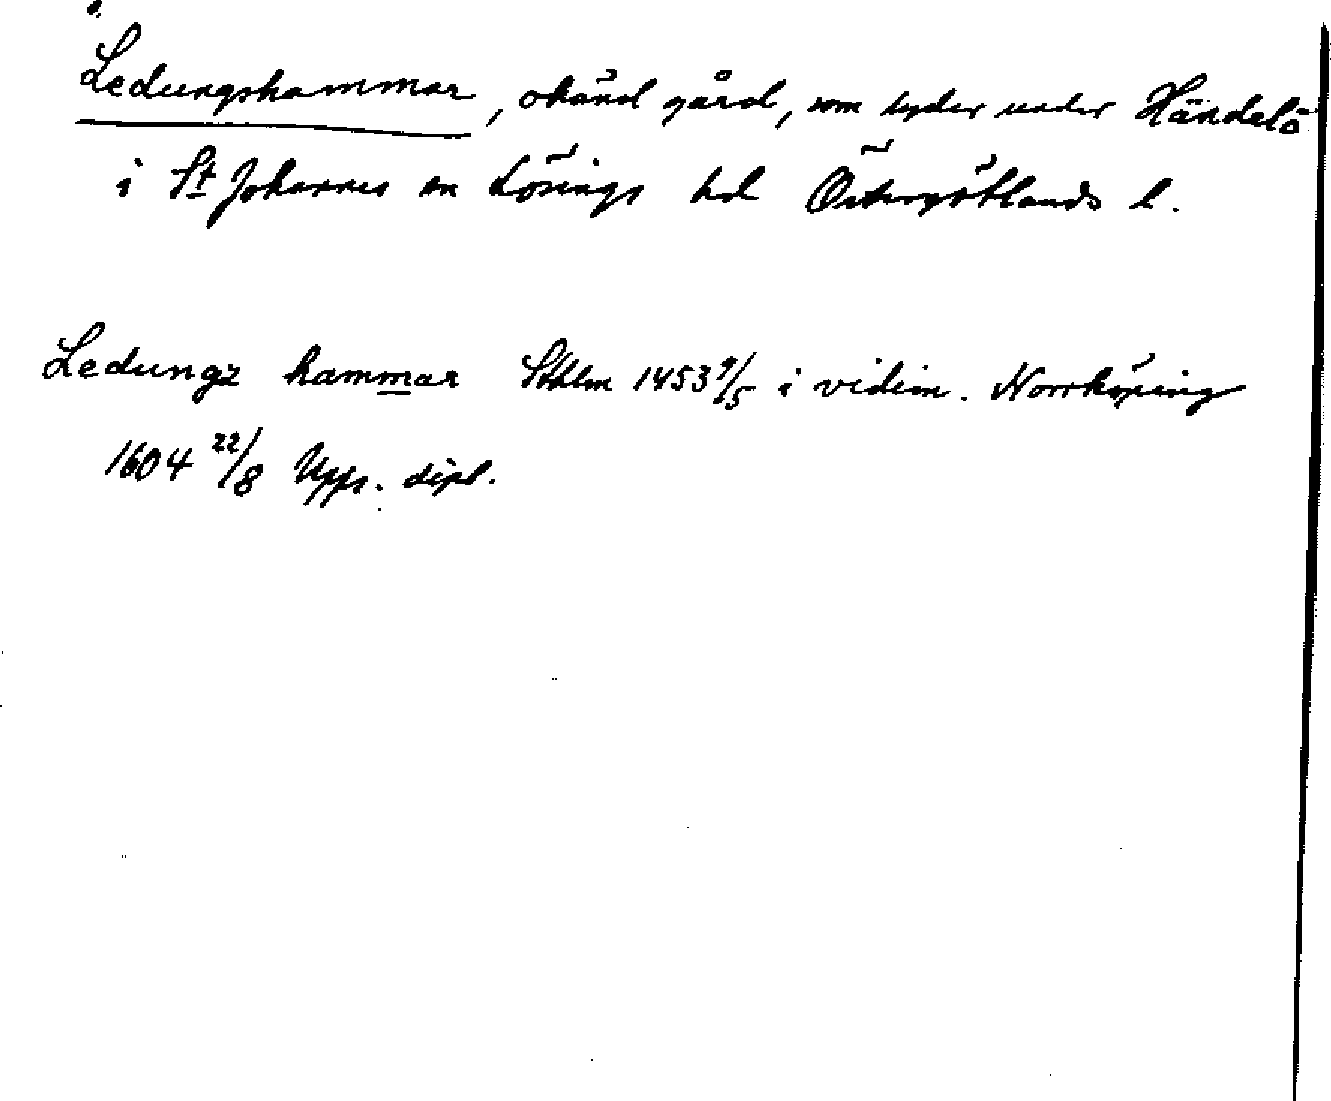 Ledungshammar, okänd gård, som lyder under Händelö
i St Johannes sn Lösings hd Östergötlands l.
Ledungz hammar Sthlm 1453 9/5 i vidim. Norrköping
1604 22/8 Upps. dipl.